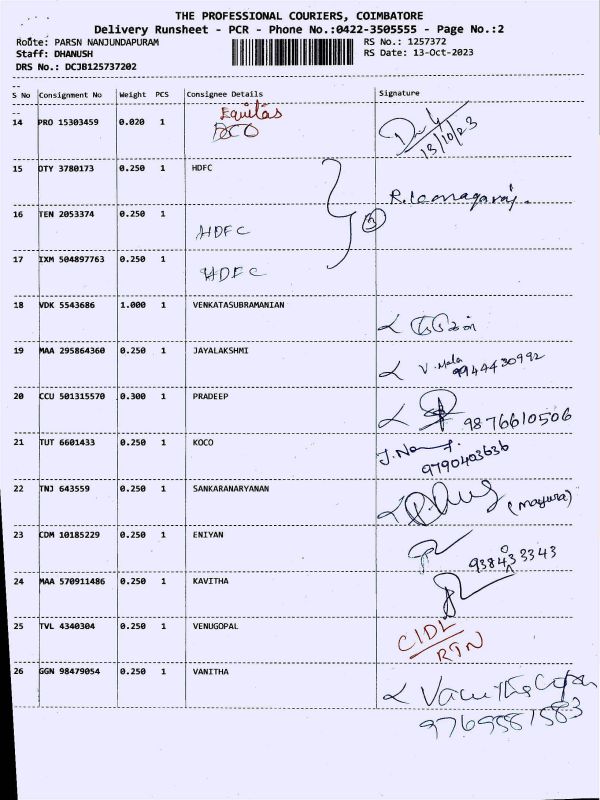 THE PROFESSIONAL COURIERS, COIMBATORE
Delivery Runsheet - PCR - Phone No.:0422-3505555 - Page No.:2
Route: PARSN NANJUNDAPURAM
RS No.: 1257372
Staff: DHANUSH
RS Date: 13-Oct-2023
DRS No.: DCJB125737202
S No Consignment No Weight PCS Consignee Details Signature
14 PRO 15303459 0.020 1 Equitas
13/10/23
15 DTY 3780173 0.250 1 HDFC
16 TEN 2053374 0.250 1 HDFC
3
17 IXM 504897763 0.250 1 HDFC
18 VDK 5543686 1.000 1 VENKATASUBRAMANIAN
19 MAA 295864360 0.250 1 JAYALAKSHMI V. Mala
9944430992
20 CCU 501315570 0.300 1 PRADEEP 9876610506
21 TUT 6601433 0.250 1 KOCO
9790403636
22 TNJ 643559 0.250 1 SANKARANARYANAN (mayura)
23 CDM 10185229 0.250 1 ENIYAN
24 MAA 570911486 0.250 1 KAVITHA
25 TVL 4340304 0.250 1 VENUGOPAL
RTN
26 GGN 98479054 0.250 1 VANITHA Vanitha